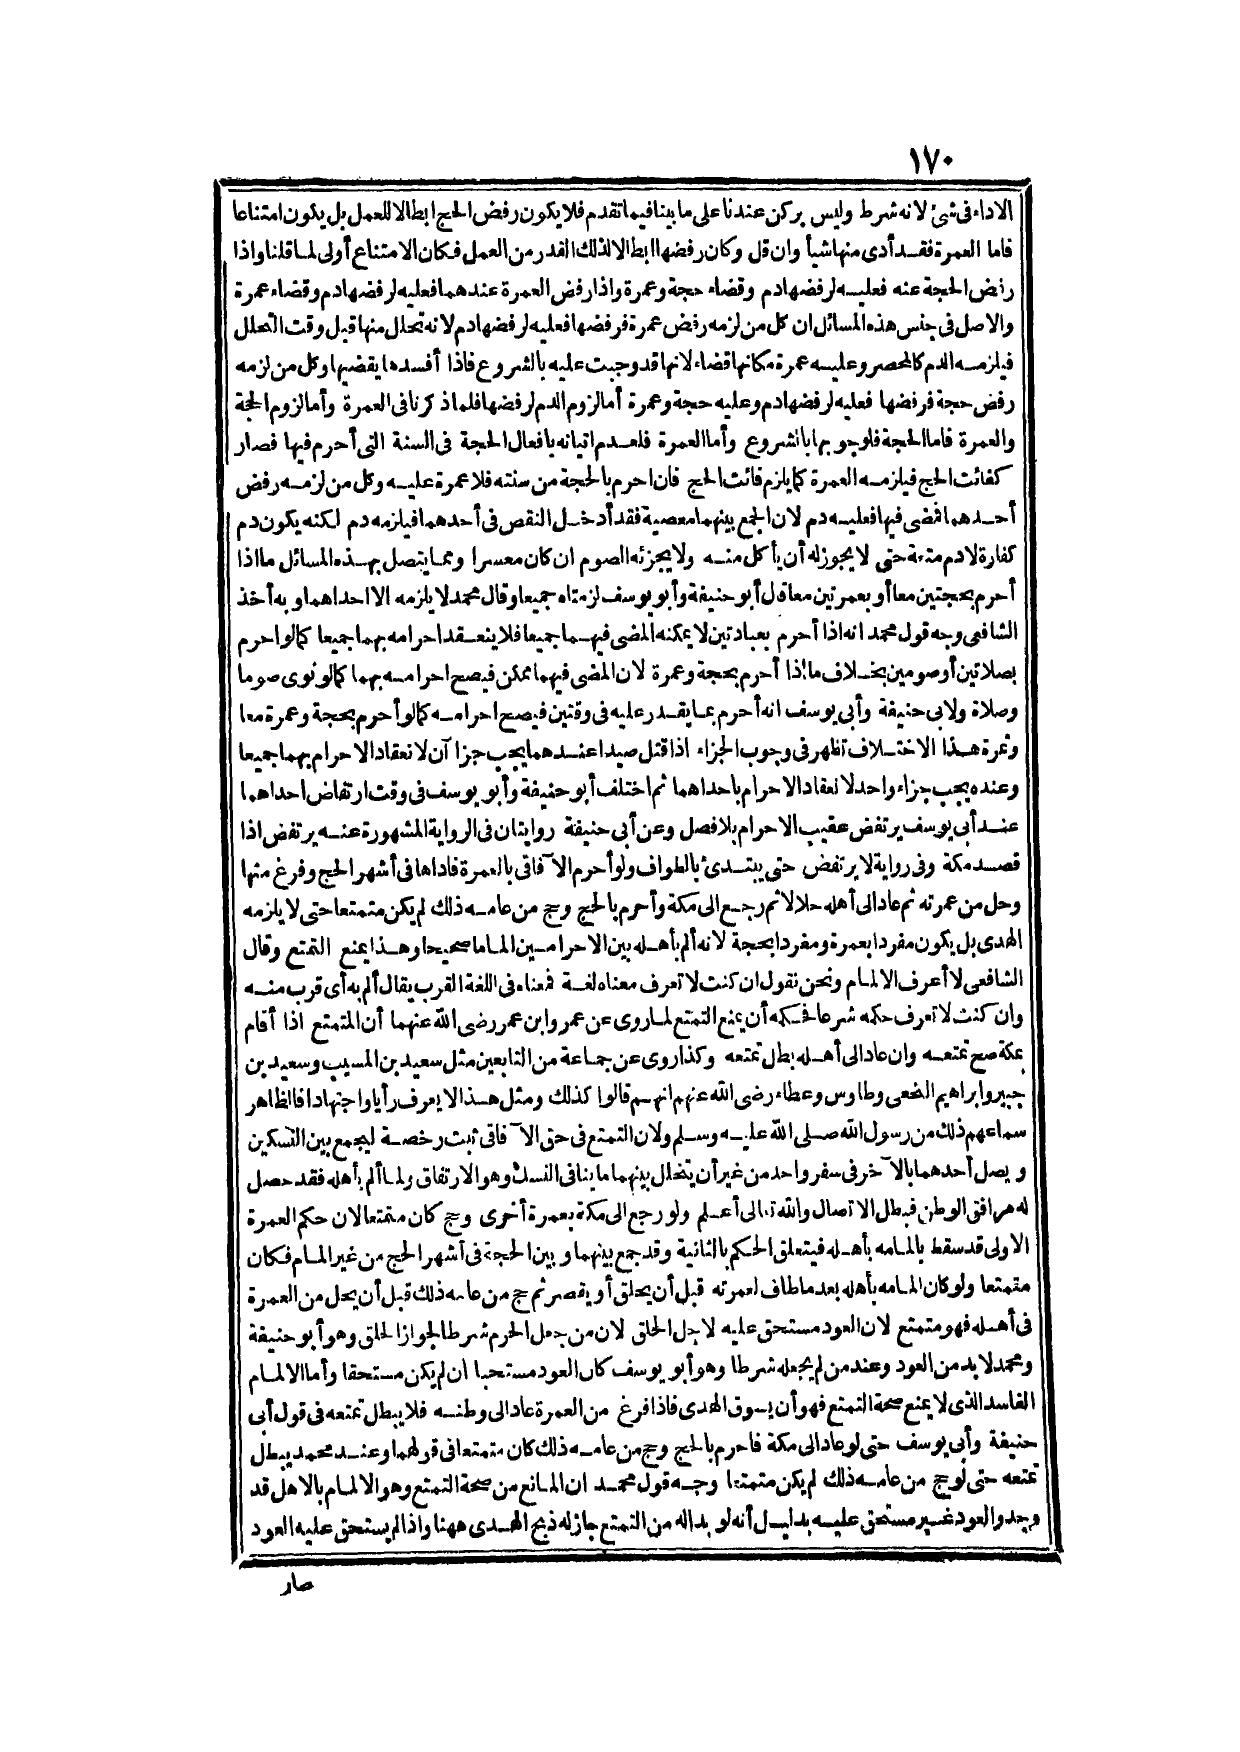 ١٧٠
الاداء فى شئ لانه شرط وليس بركن عندنا على ما بينا فيما تقدم فلا يكون رفض الحج ابطالا للعمل بل يكون امتناعا
فاما العمرة فقد أدى منها شيأ وان قل وكان رفضها ابطالا لذلك القدر من العمل فكان الامتناع أولى لما قلنا واذا
رفض الحجة عنه فعليه لرفضها دم وقضاء حجة وعمرة واذا رفض العمرة عندهما فعليه لرفضها دم وقضاء عمرة
والاصل فى جنس هذه المسائل ان كل من لزمه رفض عمرة فرفضها فعليه لرفضها دم لانه تحلل منها قبل وقت التحلل
فيلزمه الدم كالمحصر وعليه عمرة مكانها قضاء لانها قد وجبت عليه بالشروع فاذا أفسدها يقضيها وكل من لزمه
رفض حجة فرفضها فعليه لرفضها دم وعليه حجة وعمرة أما لزوم الدم لرفضها فلما ذكرنا فى العمرة وأما لزوم الحجة
والعمرة فاما الحجة فلوجوبها بالشروع وأما العمرة فلعدم اتيانه بافعال الحجة فى السنة التى أحرم فيها فصار
كفائت الحج فيلزمه العمرة كما يلزم فائت الحج فان احرم بالحجة من سنته فلا عمرة عليه وكل من لزمه رفض
أحدهما فمضى فيها فعليه دم لان الجمع بينهما معصية فقد أدخل النقص فى أحدهما فيلزمه دم لكنه يكون دم
كفارة لا دم متعة حتى لا يجوز له أن يأكل منه ولا يجزئه الصوم ان كان معسرا ومما يتصل بهذه المسائل ما اذا
أحرم بحجتين معا أو بعمرتين معا قال أبو حنيفة وأبو يوسف لزمتاه جميعا وقال محمد لا يلزمه الا احداهما وبه أخذ
الشافعى وجه قول محمد انه اذا أحرم بعبادتين لا يمكنه المضى فيهما جميعا فلا ينعقد احرامه بهما جميعا كما لو احرم
بصلاتين أو صومين بخلاف ما اذا أحرم بحجة وعمرة لان المضى فيهما ممكن فيصح احرامه بهما كما لو نوى صوما
وصلاة ولابى حنيفة وأبى يوسف انه أحرم بما يقدر عليه فى وقتين فيصح احرامه كما لو أحرم بحجة وعمرة معا
وثمرة هذا الاختلاف تظهر فى وجوب الجزاء اذا قتل صيدا عندهما يجب جزا آن لانعقاد الاحرام بهما جميعا
وعنده يجب جزاء واحد لانعقاد الاحرام باحداهما ثم اختلف أبو حنيفة وأبو يوسف فى وقت ارتفاض احداهما
عند أبى يوسف يرتفض عقيب الاحرام بلا فصل وعن أبى حنيفة روايتان فى الرواية المشهورة عنه يرتفض اذا
قصد مكة وفى رواية لا يرتفض حتى يبتدئ بالطواف ولو أحرم الآفاقى بالعمرة فاداها فى أشهر الحج وفرغ منها
وحل من عمرته ثم عاد الى أهله حلالا ثم رجع الى مكة وأحرم بالحج وحج من عامه ذلك لم يكن متمتعا حتى لا يلزمه
الهدى بل يكون مفردا بعمرة ومفردا بحجة لانه ألم بأهله بين الاحرامين الماما صحيحا وهذا يمنع التمتع وقال
الشافعى لا أعرف الالمام ونحن نقول ان كنت لا تعرف معناه لغة فمعناه فى اللغة القرب يقال ألم به أى قرب منه
وان كنت لا تعرف حكمه شرعا فحكمه أن يمنع التمتع لما روى عن عمر وابن عمر رضى الله عنهما أن المتمتع اذا أقام
بمكة صح تمتعه وان عاد الى أهله بطل تمتعه وكذا روى عن جماعة من التابعين مثل سعيد بن المسيب وسعيد بن
جبير وابراهيم النخعى وطاوس وعطاء رضى الله عنهم انهم قالوا كذلك ومثل هذا لا يعرف رأيا واجتهادا فالظاهر
سماعهم ذلك من رسول الله صلى الله عليه وسلم ولان التمتع فى حق الآفاقى ثبت رخصة ليجمع بين النسكين
ويصل أحدهما بالآخر فى سفر واحد من غير أن يتخلل بينهما ما ينافى النسك وهو الارتفاق ولما ألم بأهله فقد حصل
له مرافق الوطن فبطل الاتصال والله تعالى أعلم ولو رجع الى مكة بعمرة أخرى وحج كان متمتعا لان حكم العمرة
الاولى قد سقط بالمامه بأهله فيتعلق الحكم بالثانية وقد جمع بينهما وبين الحجة فى أشهر الحج من غير المام فكان
متمتعا ولو كان المامه بأهله بعد ما طاف لعمرته قبل أن يحلق أو يقصر ثم حج من عامه ذلك قبل أن يحل من العمرة
فى أهله فهو متمتع لان العود مستحق عليه لاجل الحلق لان من جعل الحرم شرطا لجواز الحلق وهو أبو حنيفة
ومحمد لابد من العود وعند من لم يجعله شرطا وهو أبو يوسف كان العود مستحبا ان لم يكن مستحقا وأما الالمام
الفاسد الذى لا يمنع صحة التمتع فهو أن يسوق الهدى فاذا فرغ من العمرة عاد الى وطنه فلا يبطل تمتعه فى قول أبى
حنيفة وأبى يوسف حتى لو عاد الى مكة فاحرم بالحج وحج من عامه ذلك كان متمتعا فى قولهما وعند محمد يبطل
تمتعه حتى لو حج من عامه ذلك لم يكن متمتعا وجه قول محمد ان المانع من صحة التمتع وهو الالمام بالاهل قد
وجد والعود غير مستحق عليه بدليل أنه لو بدا له من التمتع جاز له ذبح الهدى ههنا واذا لم يستحق عليه العود
صار